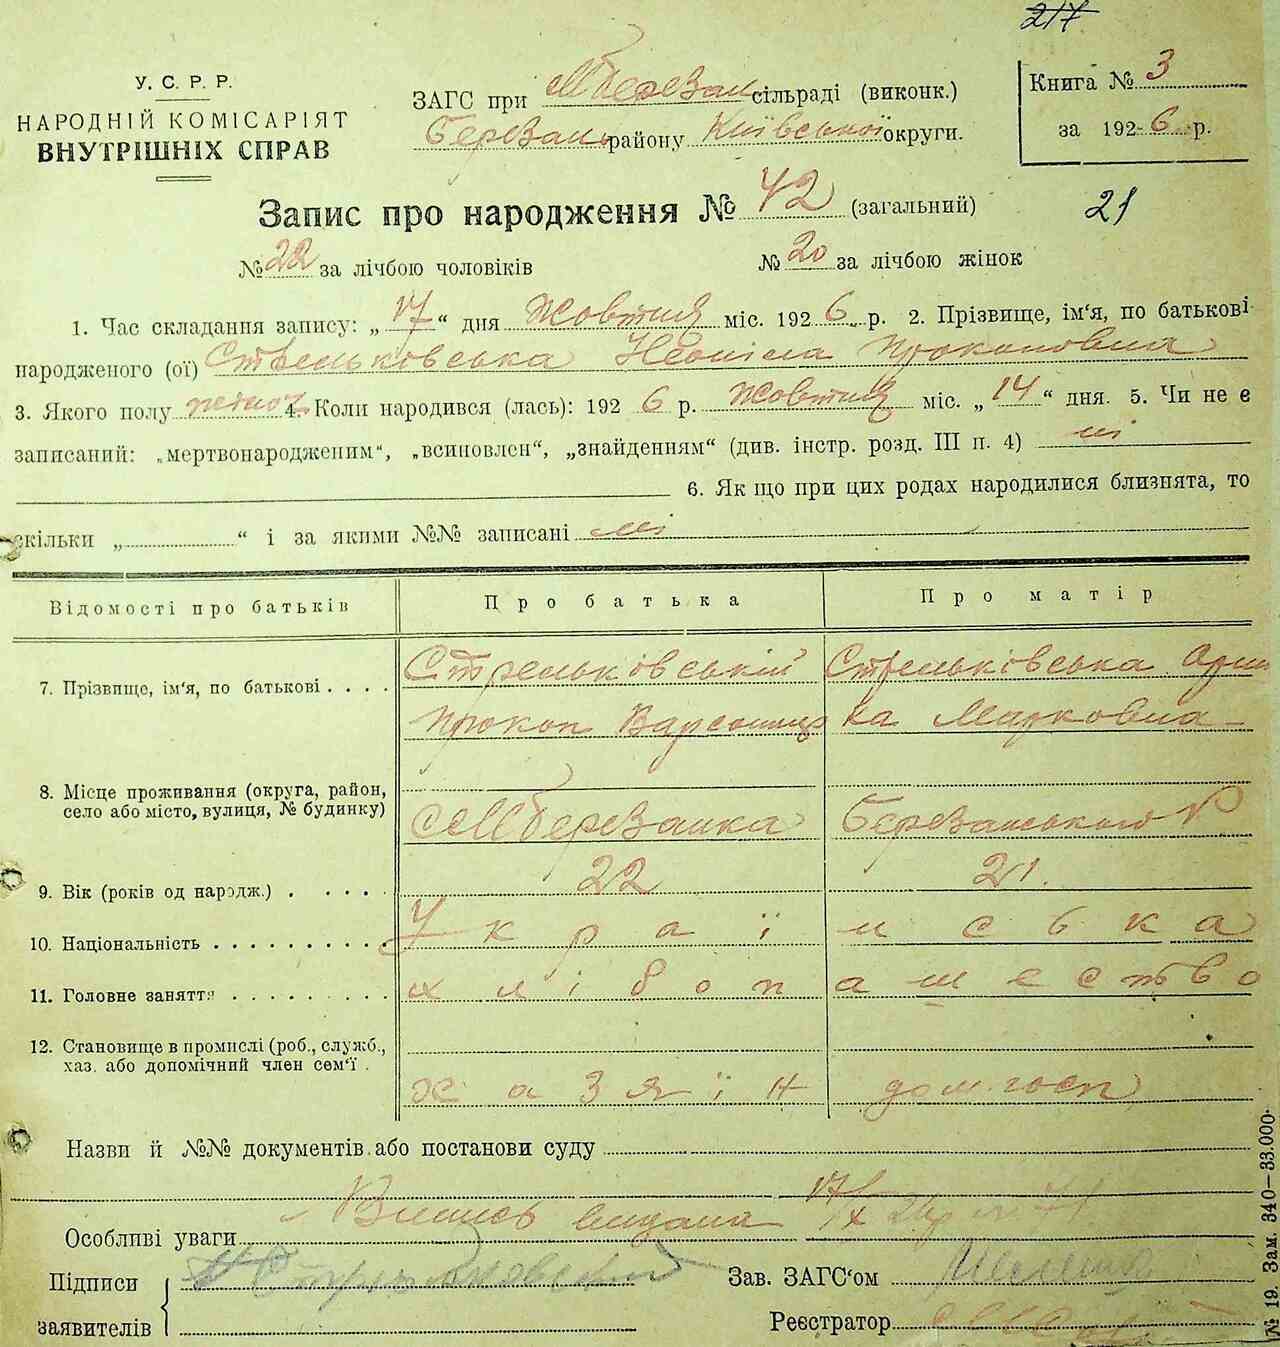 217
У. С. Р. Р.
НАРОДНІЙ КОМІСАРІЯТ
ВНУТРІШНІХ СПРАВ
ЗАГС при М березан сільраді (виконк.)
Березань району Київської округи.
Книга № 3
за 1926 р.
Запис про народження № 42 (загальний)
21
№ 22 за лічбою чоловіків № 20 за лічбою жінок
1. Час складання запису: „17“ дня Жовтня міс. 1926 р. 2. Прізвище, ім'я, по батькові
народженого (ої) Стреньковська Неоніла Прокоповна
3. Якого полу жіноч 4. Коли народився (лась): 1926 р. Жовтня міс. „14“ дня. 5. Чи не є
записаний: „мертвонародженим“, „всиновлен“, „знайденням“ (див. інстр. розд. III п. 4) ні
6. Як що при цих родах народилися близнята, то
скільки „ “ і за якими №№ записані ні
Відомості про батьків Про батька Про матір
7. Прізвище, ім'я, по батькові . . . . Стреньківській Стреньківська Орин
Прокоп ка Марковна
8. Місце проживання (округа, район,
село або місто, вулиця, № будинку) с М березанка Березанського р.
9. Вік (років од народж.) . . . . . 22 21.
10. Національність . . . . . . . . . Українська
11. Головне заняття . . . . . . . . . хлібопашество
12. Становище в промислі (роб., служб.,
хаз. або допомічний член сем'ї . хазяїн дом. госп
Назви й №№ документів або постанови суду
Особливі уваги Випись видана 17/X 26р
Підписи
заявителів
Зав. ЗАГС'ом
Реєстратор
№ 19. Зам. 340–33.000.